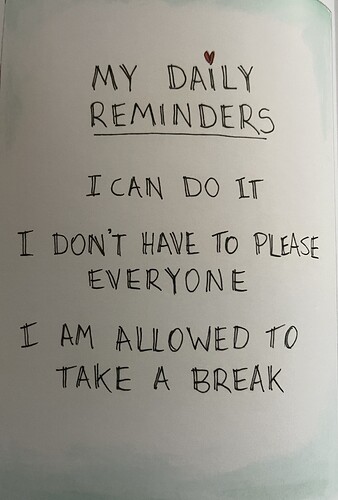 MY DAILY
REMINDERS
I CAN DO IT
I DON'T HAVE TO PLEASE
EVERYONE
I AM ALLOWED TO
TAKE A BREAK